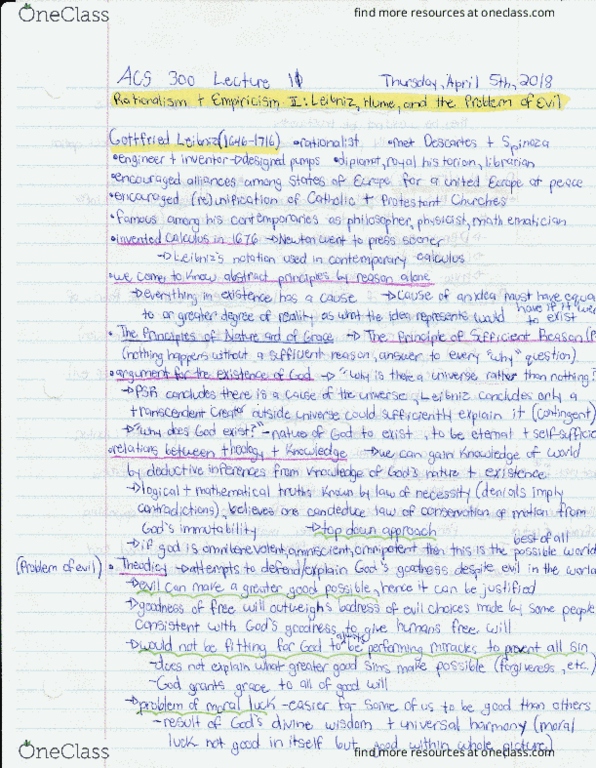 OneClass
find more resources at oneclass.com
ACS 300 Lecture 11 Thursday, April 5th, 2018
Rationalism + Empiricism II: Leibniz, Hume, and the Problem of Evil
Gottfried Leibniz (1646-1716) •rationalist •met Descartes + Spinoza
•engineer + inventor→designed pumps •diplomat, royal historian, librarian
•encouraged alliances among states of Europe for a united Europe at peace
•encouraged (re)unification of Catholic + Protestant Churches
•famous among his contemporaries as philosopher, physicist, mathematician
•invented calculus in 1676 →Newton went to press sooner
→Leibniz's notation used in contemporary calculus
•we come to know abstract principles by reason alone
→everything in existence has a cause →cause of an idea must have equal
to or greater degree of reality as what the idea represents would have if it were to exist
•The Principles of Nature and of Grace →The Principle of Sufficient Reason (P
(nothing happens without a sufficient reason, answer to every "why" question)
•argument for the existence of God →"why is there a universe rather than nothing?"
→PSR concludes there is a cause of the universe, Leibniz concludes only a
transcendent creator outside universe could sufficiently explain it (contingent)
→"why does God exist?" -nature of God to exist, to be eternal + self-suffic
•relations between theology + knowledge →we can gain knowledge of world
by deductive inferences from knowledge of God's nature + existence
→logical + mathematical truths known by law of necessity (denials imply
contradictions), believes one can deduce law of conservation of motion from
God's immutability →top down approach
→if god is omnibenevolent, omniscient, omnipotent then this is the best of all possible world
(Problem of evil) •Theodicy →attempts to defend/explain God's goodness despite evil in the world
→evil can make a greater good possible, hence it can be justified
→goodness of free will outweighs badness of evil choices made by some people
consistent with God's goodness to give humans free will
→would not be fitting for God to be always performing miracles to prevent all sin
-does not explain what greater good sins make possible (forgiveness, etc.)
-God grants grace to all of good will
→problem of moral luck -easier for some of us to be good than others
-result of God's divine wisdom + universal harmony (moral
luck not good in itself but good within whole picture)
OneClass
find more resources at oneclass.com